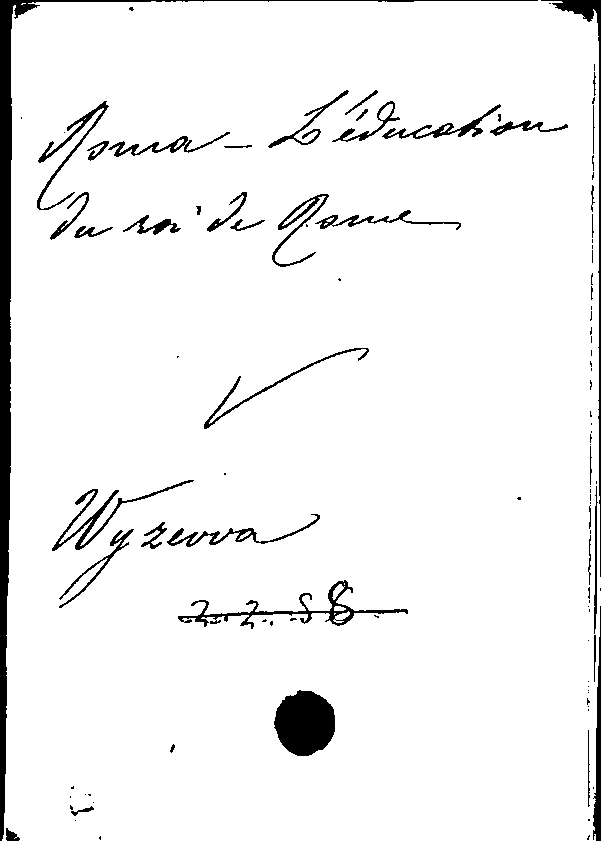 Roma - L'éducation
du roi de Rome
Wyzewa